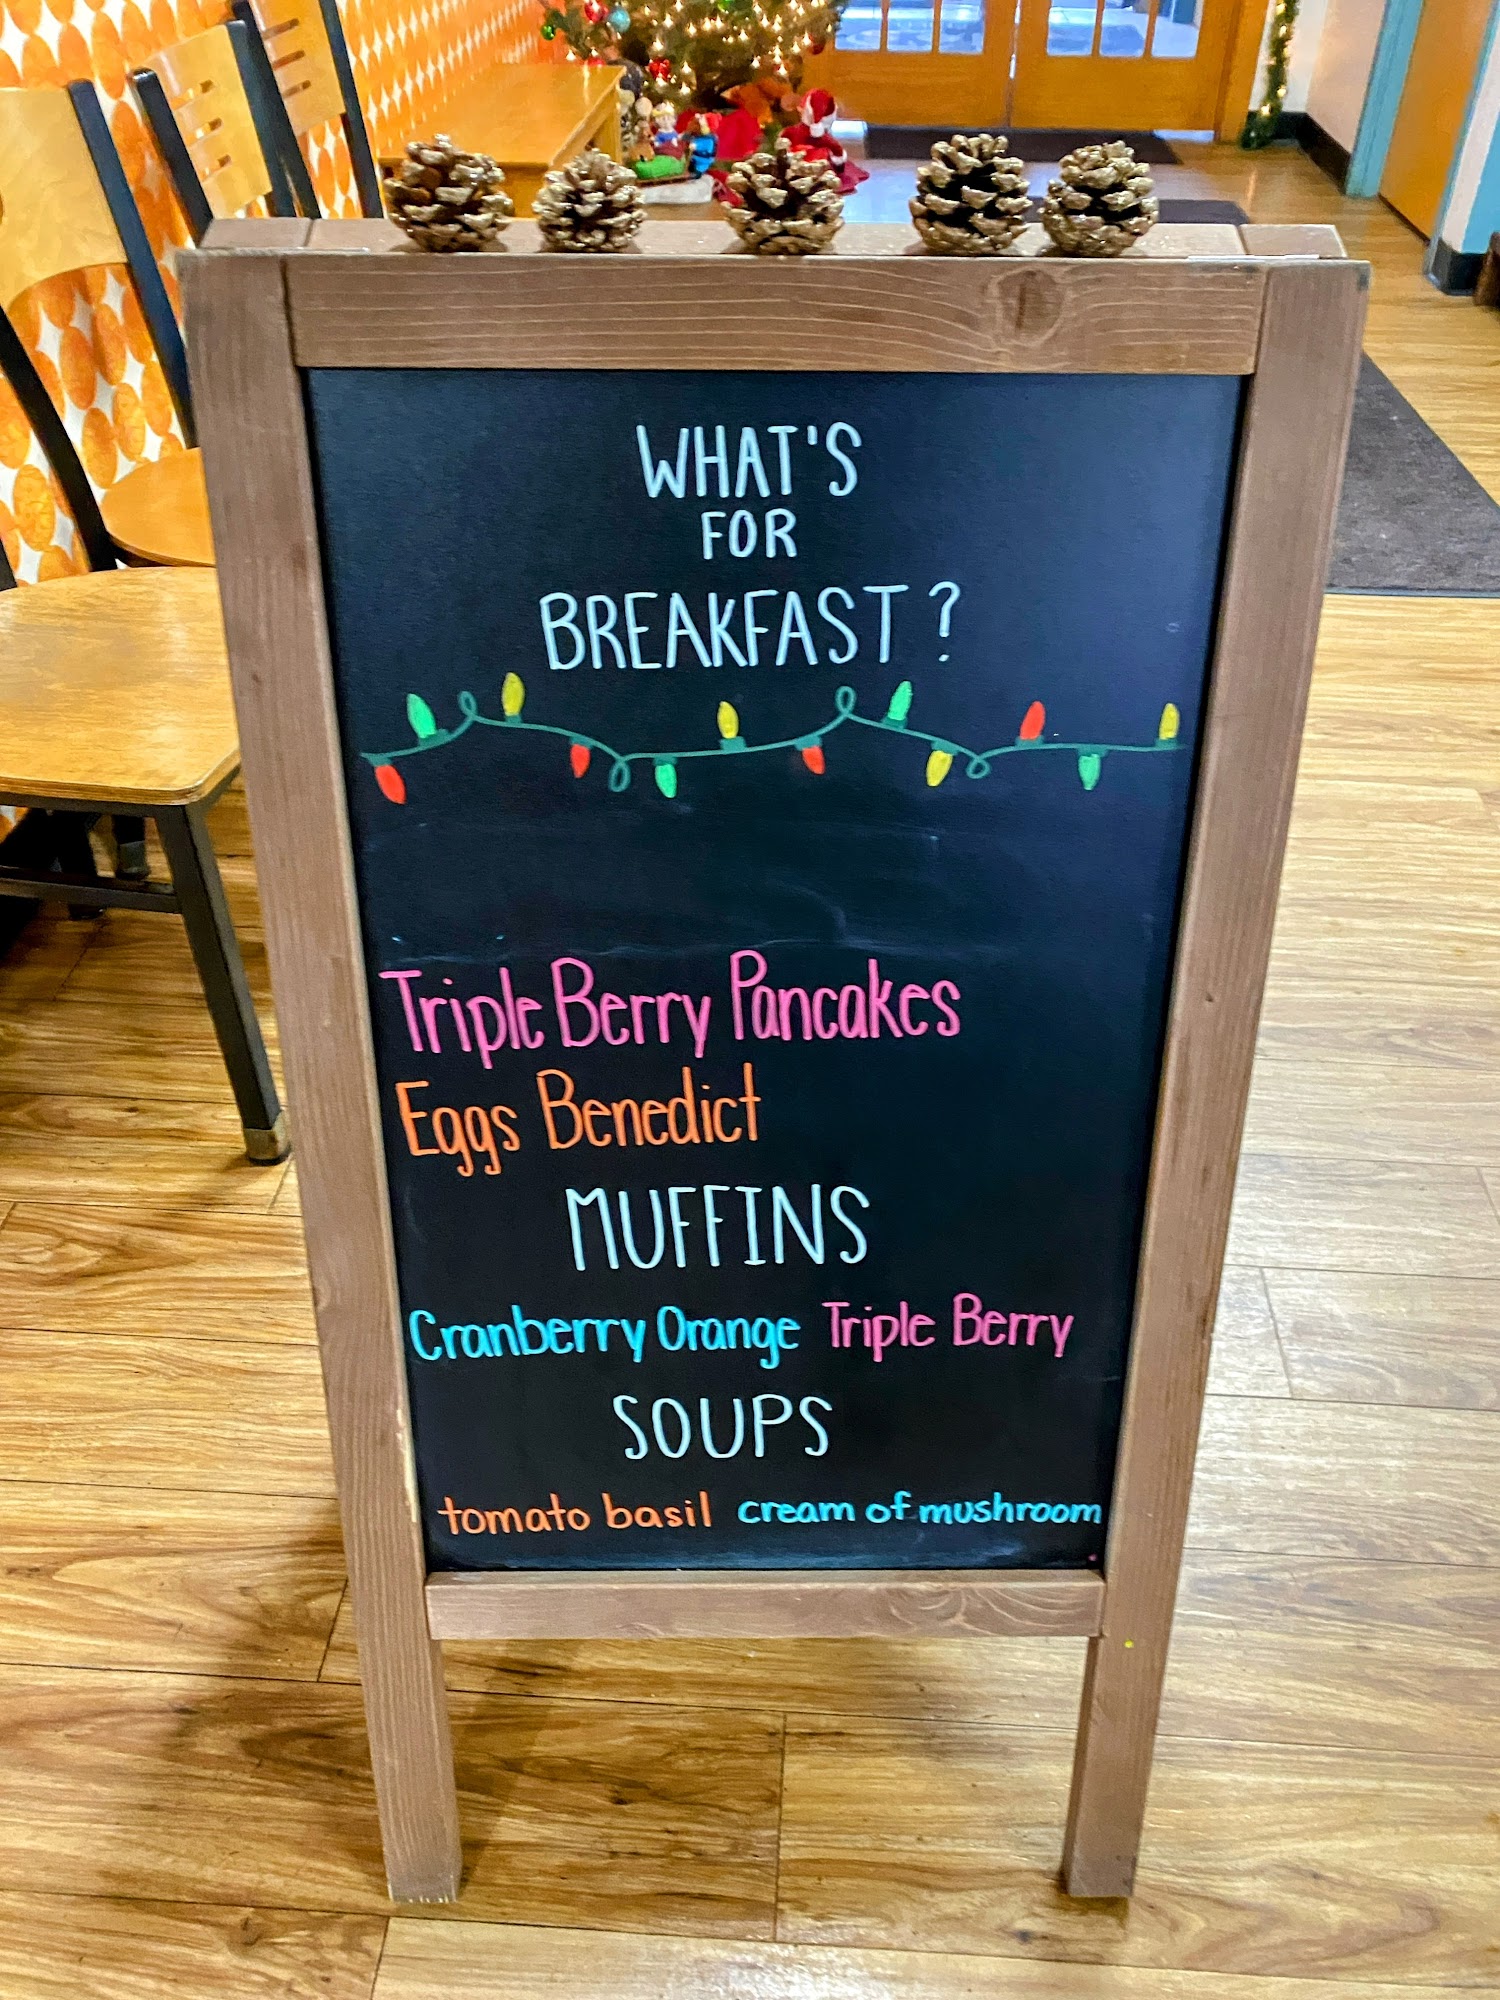 WHAT'S
FOR
BREAKFAST?
Triple Berry Pancakes
Eggs Benedict
MUFFINS
Cranberry Orange Triple Berry
SOUPS
tomato basil cream of mushroom